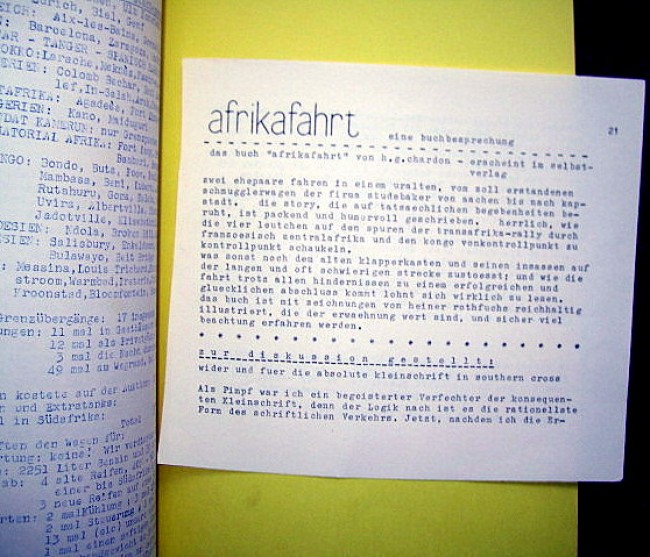 Zürich, Biel, Genf
REICH: Aix-les-Bains,
Barcelona, Zaragoza
TANGER - SPANISCH
MAROKKO: Larache, Meknès,
Colomb Bechar,
lef, In-Salah,
Agades, Fort
Kano, Maiduguri
MANDAT KAMERUN: nur Grenz
AEQUATORIAL AFRIKA: Fort
Bondo, Buta,
Mambasa, Beni,
Rutshuru, Goma,
Uvira, Albertville,
Jadotville,
Ndola, Broken
Salisbury,
Bulawayo, Beit
Messina, Louis Trichard,
stroom, Warmbad, Pretoria,
Kroonstad, Bloemfontein,
Grenzübergänge: 17
11 mal in
12 mal als
3 mal die Nacht
49 mal am Wegrand,
kostete auf der
und Extratanks:
in Südafrika:
Total
den Wagen für:
keine! Wir
2251 Liter Benzin und
4 alte Reifen,
einer bis Südafrika
3 neue Reifen auf
2 mal Kühlung
2 mal Steuerung
13 mal (sic)
1 mal einen
afrikafahrt eine buchbesprechung 21
das buch "afrikafahrt" von h.g.chardon - erscheint im selbst-
verlag
zwei ehepaare fahren in einem uralten, vom soll erstandenen
schmugglerwagen der firma studebaker von aachen bis nach kap-
stadt. die story, die auf tatsaechlichen begebenheiten be-
ruht, ist packend und humorvoll geschrieben. herrlich, wie
die vier leutchen auf den spuren der transafrika-rally durch
franzoesisch zentralafrika und den kongo vonkontrollpunkt zu
kontrollpunkt schaukeln.
was sonst noch dem alten klapperkasten und seinen insassen auf
der langen und oft schwierigen strecke zustoesst; und wie die
fahrt trotz allen hindernissen zu einem erfolgreichen und
gluecklichen abschluss kommt lohnt sich wirklich zu lesen.
das buch ist mit zeichnungen von heiner rothfuchs reichhaltig
illustriert, die der erwaehnung wert sind, und sicher viel
beachtung erfahren werden.
zur diskussion gestellt:
wider und fuer die absolute kleinschrift in southern cross
Als Pimpf war ich ein begeisterter Verfechter der konsequen-
ten Kleinschrift, denn der Logik nach ist es die rationellste
Form des schriftlichen Verkehrs. Jetzt, nachdem ich die Er-